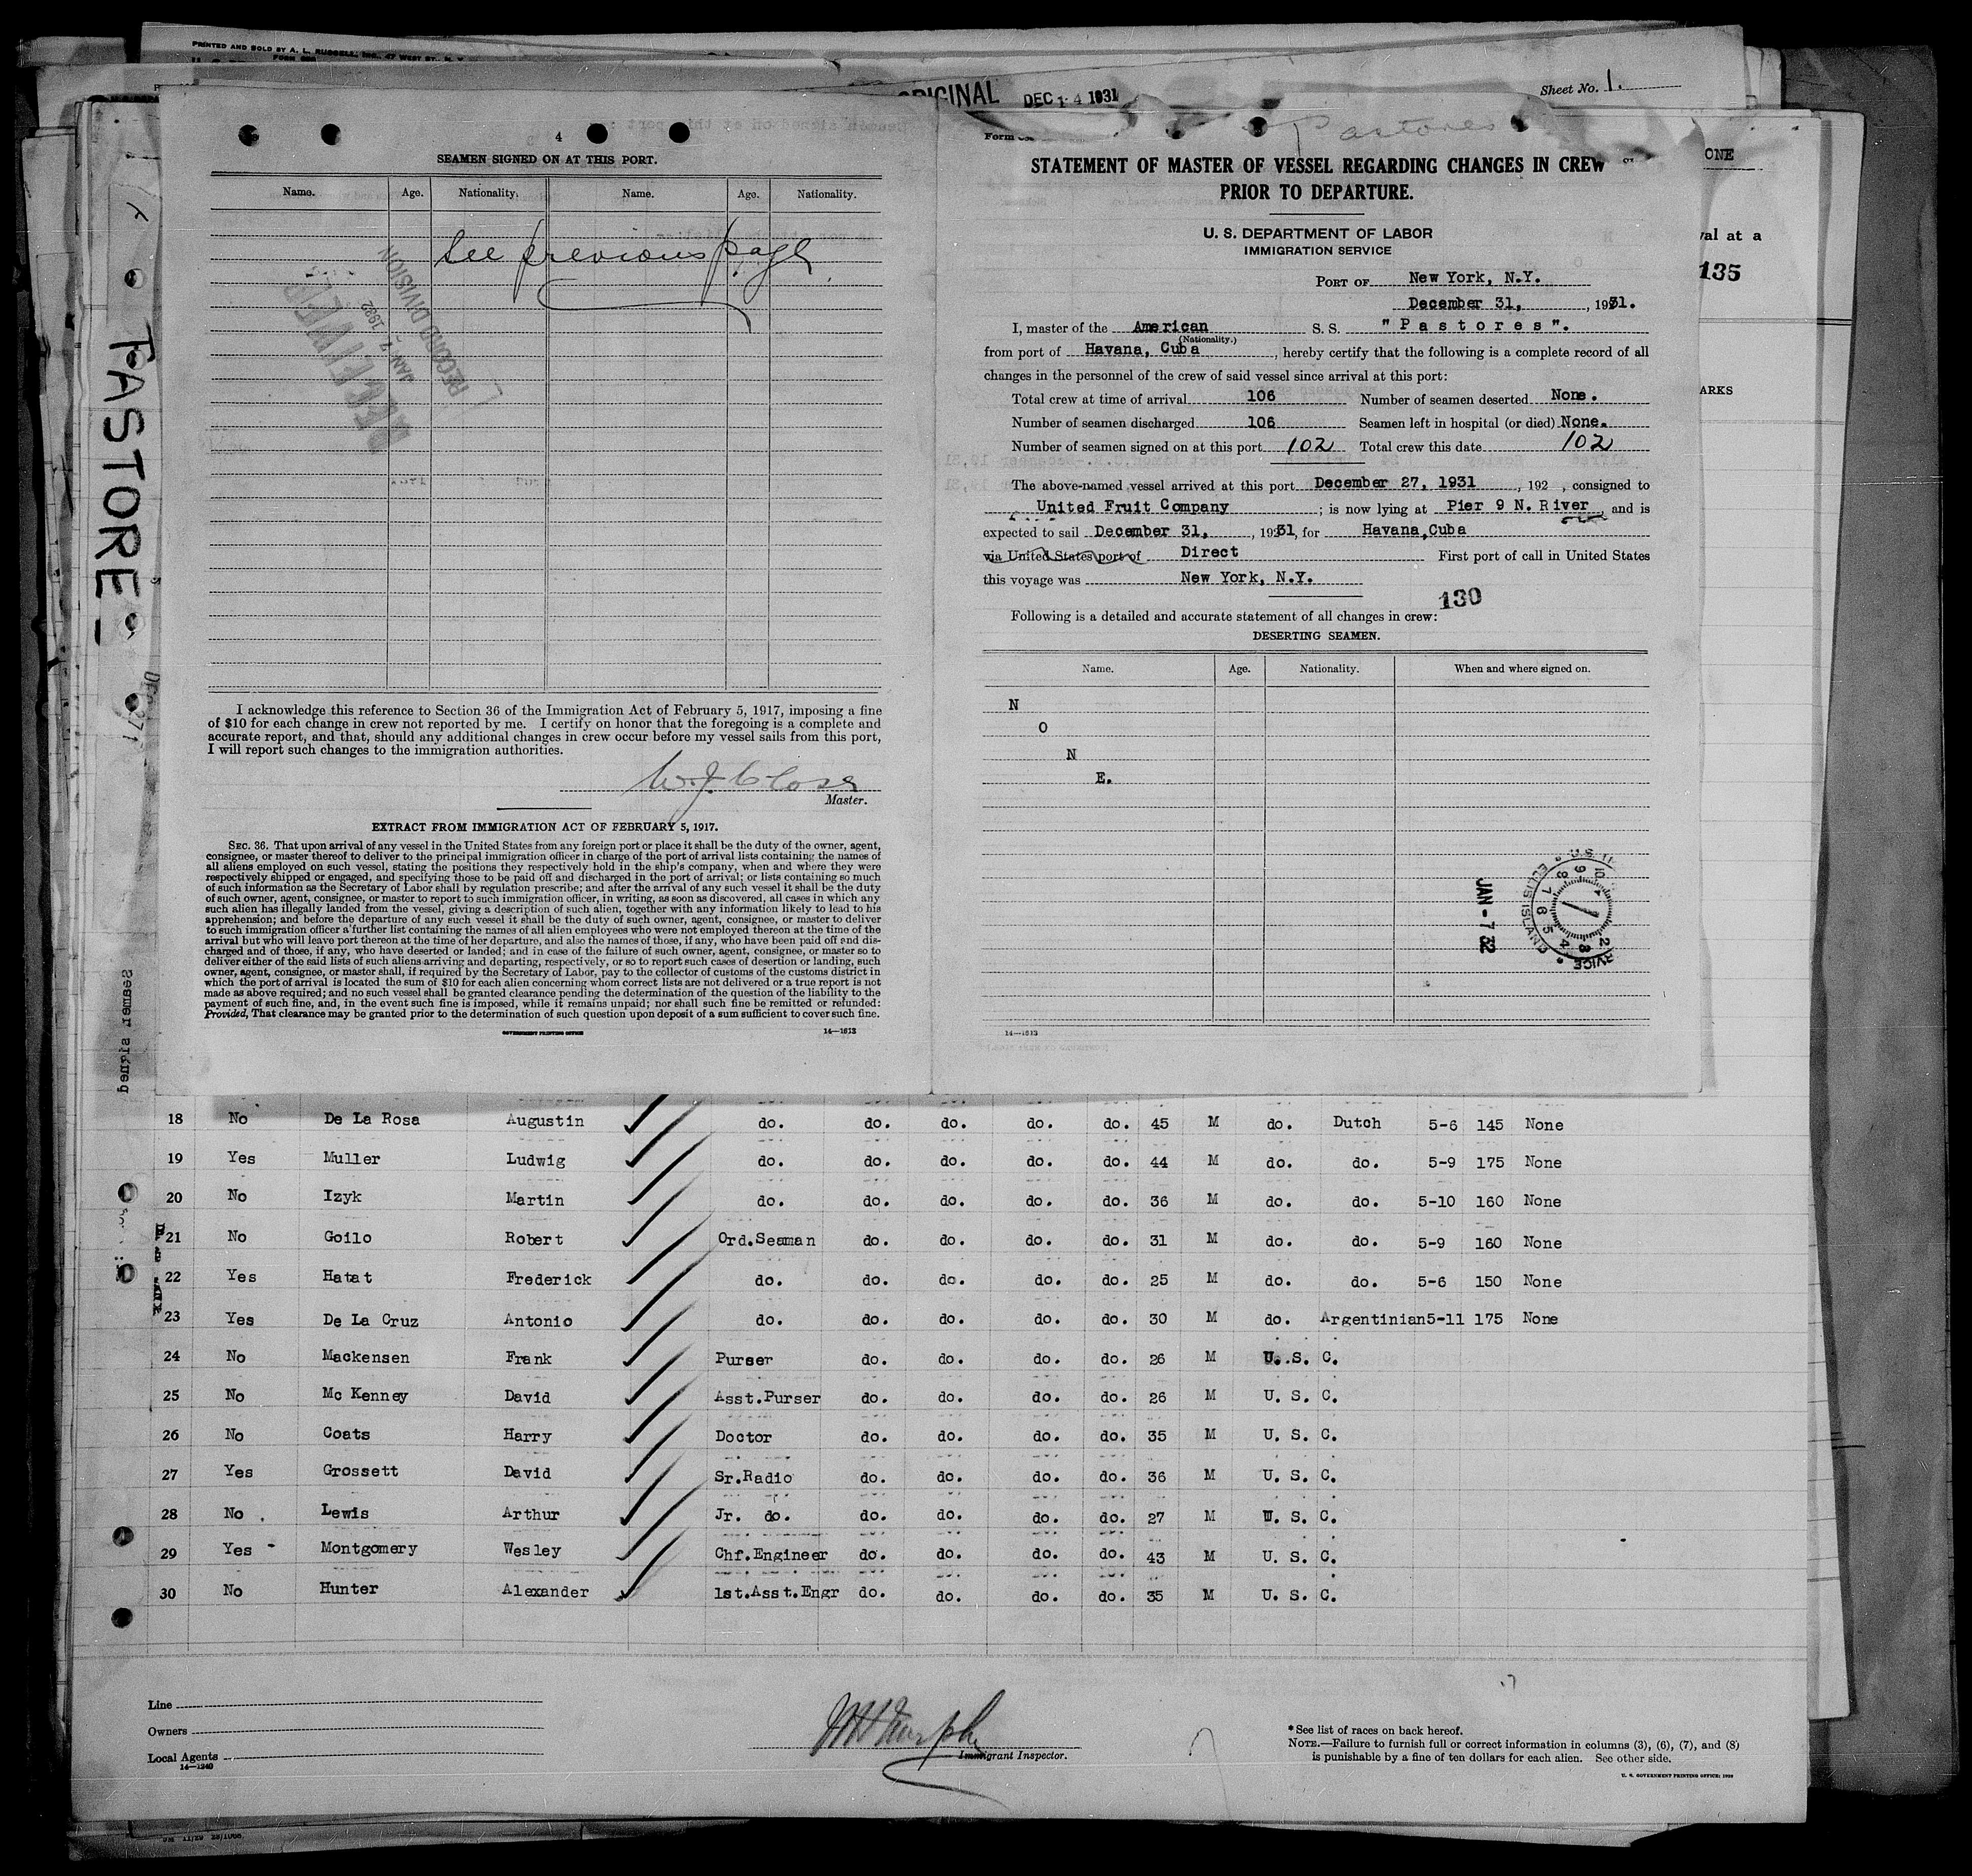 PRINTED AND SOLD BY A. L. RUSSELL, Inc., 47 WEST ST., N. Y.
ORIGINAL
DEC 14 1931
Sheet No. 1.
PASTORES
4
SEAMEN SIGNED ON AT THIS PORT.
Name. Age. Nationality. Name. Age. Nationality.
See previous page
RECEIVED
JAN 7 1932
RECORD DIVISION
I acknowledge this reference to Section 36 of the Immigration Act of February 5, 1917, imposing a fine
of $10 for each change in crew not reported by me. I certify on honor that the foregoing is a complete and
accurate report, and that, should any additional changes in crew occur before my vessel sails from this port,
I will report such changes to the immigration authorities.
W. J. Close
Master.
EXTRACT FROM IMMIGRATION ACT OF FEBRUARY 5, 1917.
SEC. 36. That upon arrival of any vessel in the United States from any foreign port or place it shall be the duty of the owner, agent,
consignee, or master thereof to deliver to the principal immigration officer in charge of the port of arrival lists containing the names of
all aliens employed on such vessel, stating the positions they respectively hold in the ship's company, when and where they were
respectively shipped or engaged, and specifying those to be paid off and discharged in the port of arrival; or lists containing so much
of such information as the Secretary of Labor shall by regulation prescribe; and after the arrival of any such vessel it shall be the duty
of such owner, agent, consignee, or master to report to such immigration officer, in writing, as soon as discovered, all cases in which any
such alien has illegally landed from the vessel, giving a description of such alien, together with any information likely to lead to his
apprehension; and before the departure of any such vessel it shall be the duty of such owner, agent, consignee, or master to deliver
to such immigration officer a further list containing the names of all alien employees who were not employed thereon at the time of the
arrival but who will leave port thereon at the time of her departure, and also the names of those, if any, who have been paid off and dis-
charged and of those, if any, who have deserted or landed; and in case of the failure of such owner, agent, consignee, or master so to
deliver either of the said lists of such aliens arriving and departing, respectively, or so to report such cases of desertion or landing, such
owner, agent, consignee, or master shall, if required by the Secretary of Labor, pay to the collector of customs of the customs district in
which the port of arrival is located the sum of $10 for each alien concerning whom correct lists are not delivered or a true report is not
made as above required; and no such vessel shall be granted clearance pending the determination of the question of the liability to the
payment of such fine, and, in the event such fine is imposed, while it remains unpaid; nor shall such fine be remitted or refunded:
Provided, That clearance may be granted prior to the determination of such question upon deposit of a sum sufficient to cover such fine.
GOVERNMENT PRINTING OFFICE
14—1613
Form
Pastores
STATEMENT OF MASTER OF VESSEL REGARDING CHANGES IN CREW
PRIOR TO DEPARTURE.
U. S. DEPARTMENT OF LABOR
IMMIGRATION SERVICE
PORT OF New York, N.Y.
December 31, , 1931.
I, master of the American S. S. "Pastores".
(Nationality.)
from port of Havana, Cuba , hereby certify that the following is a complete record of all
changes in the personnel of the crew of said vessel since arrival at this port:
Total crew at time of arrival 106 Number of seamen deserted None.
Number of seamen discharged 106 Seamen left in hospital (or died) None.
Number of seamen signed on at this port 102 Total crew this date 102
The above-named vessel arrived at this port December 27, 1931 , 192 , consigned to
United Fruit Company ; is now lying at Pier 9 N. River , and is
expected to sail December 31, , 1931, for Havana,Cuba
via United States port of Direct First port of call in United States
this voyage was New York, N.Y.
130
Following is a detailed and accurate statement of all changes in crew:
DESERTING SEAMEN.
Name. Age. Nationality. When and where signed on.
N
O
N
E.
JAN -7 32
ELLIS ISLAND
14—1613
ONE
val at a
135
ARKS
18 No De La Rosa Augustin do. do. do. do. do. 45 M do. Dutch 5-6 145 None
19 Yes Muller Ludwig do. do. do. do. do. 44 M do. do. 5-9 175 None
20 No Izyk Martin do. do. do. do. do. 36 M do. do. 5-10 160 None
21 No Goilo Robert Ord.Seaman do. do. do. do. 31 M do. do. 5-9 160 None
22 Yes Hatat Frederick do. do. do. do. do. 25 M do. do. 5-6 150 None
23 Yes De La Cruz Antonio do. do. do. do. do. 30 M do. Argentinian 5-11 175 None
24 No Mackensen Frank Purser do. do. do. do. 26 M U. S. C.
25 No Mc Kenney David Asst.Purser do. do. do. do. 26 M U. S. C.
26 No Coats Harry Doctor do. do. do. do. 35 M U. S. C.
27 Yes Grossett David Sr.Radio do. do. do. do. 36 M U. S. C.
28 No Lewis Arthur Jr. do. do. do. do. do. 27 M U. S. C.
29 Yes Montgomery Wesley Chf.Engineer do. do. do. do. 43 M U. S. C.
30 No Hunter Alexander 1st.Asst.Engr do. do. do. do. 35 M U. S. C.
Line
Owners
Local Agents
14—1240
Immigrant Inspector.
* See list of races on back hereof.
NOTE.—Failure to furnish full or correct information in columns (3), (6), (7), and (8)
is punishable by a fine of ten dollars for each alien. See other side.